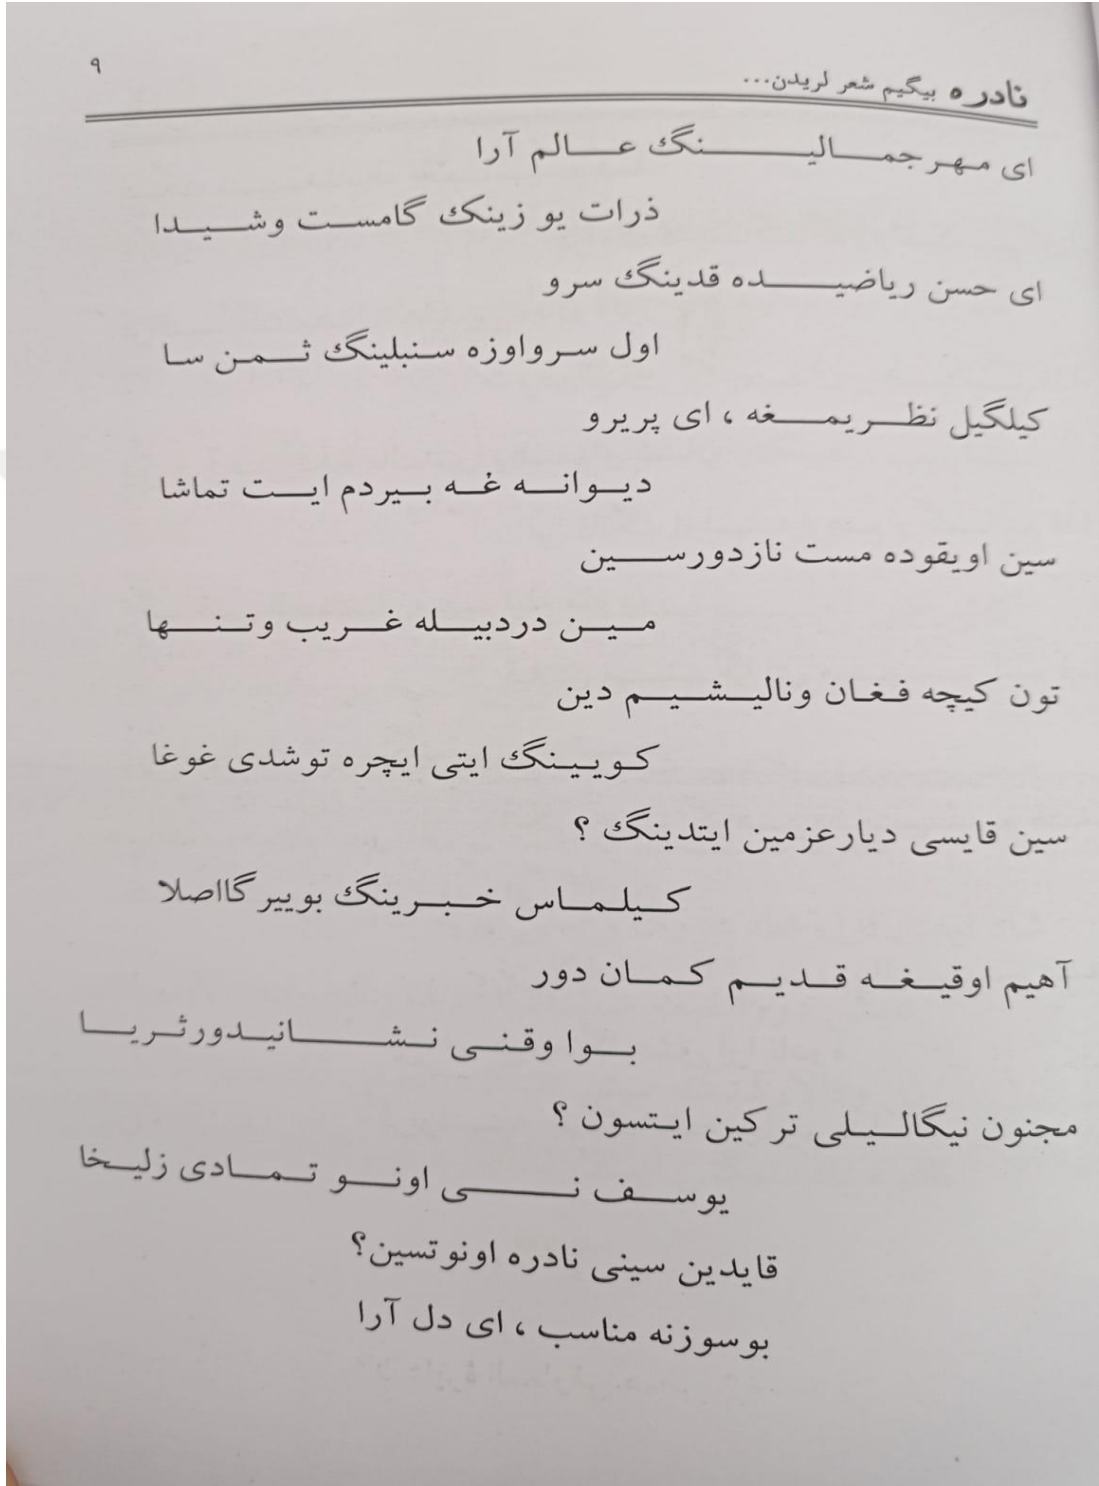 ۹
نادره بیگیم شعر لریدن...
ای مهر جمالینگ عالم آرا
ذرات یو زینک گامست وشیدا
ای حسن ریاضیده قدینگ سرو
اول سرواوزه سنبلینگ ثمن سا
کیلگیل نظریمغه ، ای پریرو
دیوانه غه بیردم ایت تماشا
سین اویقوده مست نازدورسین
مین دردبیله غریب وتنها
تون کیچه فغان ونالیشیم دین
کویینگ ایتی ایچره توشدی غوغا
سین قایسی دیارعزمین ایتدینگ ؟
کیلماس خبرینگ بوییرگااصلا
آهیم اوقیغه قدیم کمان دور
بوا وقنی نشانیدورثریا
مجنون نیگالیلی ترکین ایتسون ؟
یوسف نی اونو تمادی زلیخا
قایدین سینی نادره اونوتسین؟
بوسوزنه مناسب ، ای دل آرا